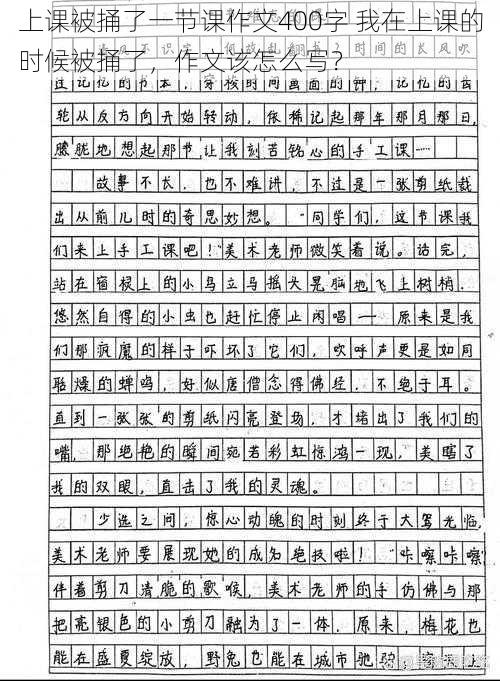 上课被捅了一节课作文400字 我在上课的
时候被捅了，作文该怎么写？
过记忆的书本，穿梭时间画面的钟，记忆的齿
轮从反方向开始转动，依稀记起那年那月那日，
朦胧地想起那节让我刻苦铭心的手工课……
故事不长，也不难讲，不过是一张剪纸载
出从前儿时的奇思妙想。“同学们，这节课我
们来上手工课吧！”美术老师微笑着说。话完，
站在窗棂上的小鸟立马摇头晃脑地飞上树梢，
悠然自得的小虫也赶忙停止闲唱——原来是我
们那疯魔的样子吓坏了它们，欢呼声更是如同
聒燥的蝉鸣，好似唐僧念得佛经，不绝于耳。
直到一张张的剪纸闪亮登场，才堵出了我们的
嘴，那绝艳的瞬间宛若彩虹惊鸿一现，美瞎了
我的双眼，直击了我的灵魂。
少选之间，惊心动魄的时刻终于大驾光临，
美术老师要展现她的成名绝技啦！“咔嚓咔嚓”
伴着剪刀清脆的歌喉，美术老师的手仿佛与那
把亮银色的小剪刀融为了一体，原来，梅花也
能在盛夏绽放，野兔也能在城市驰